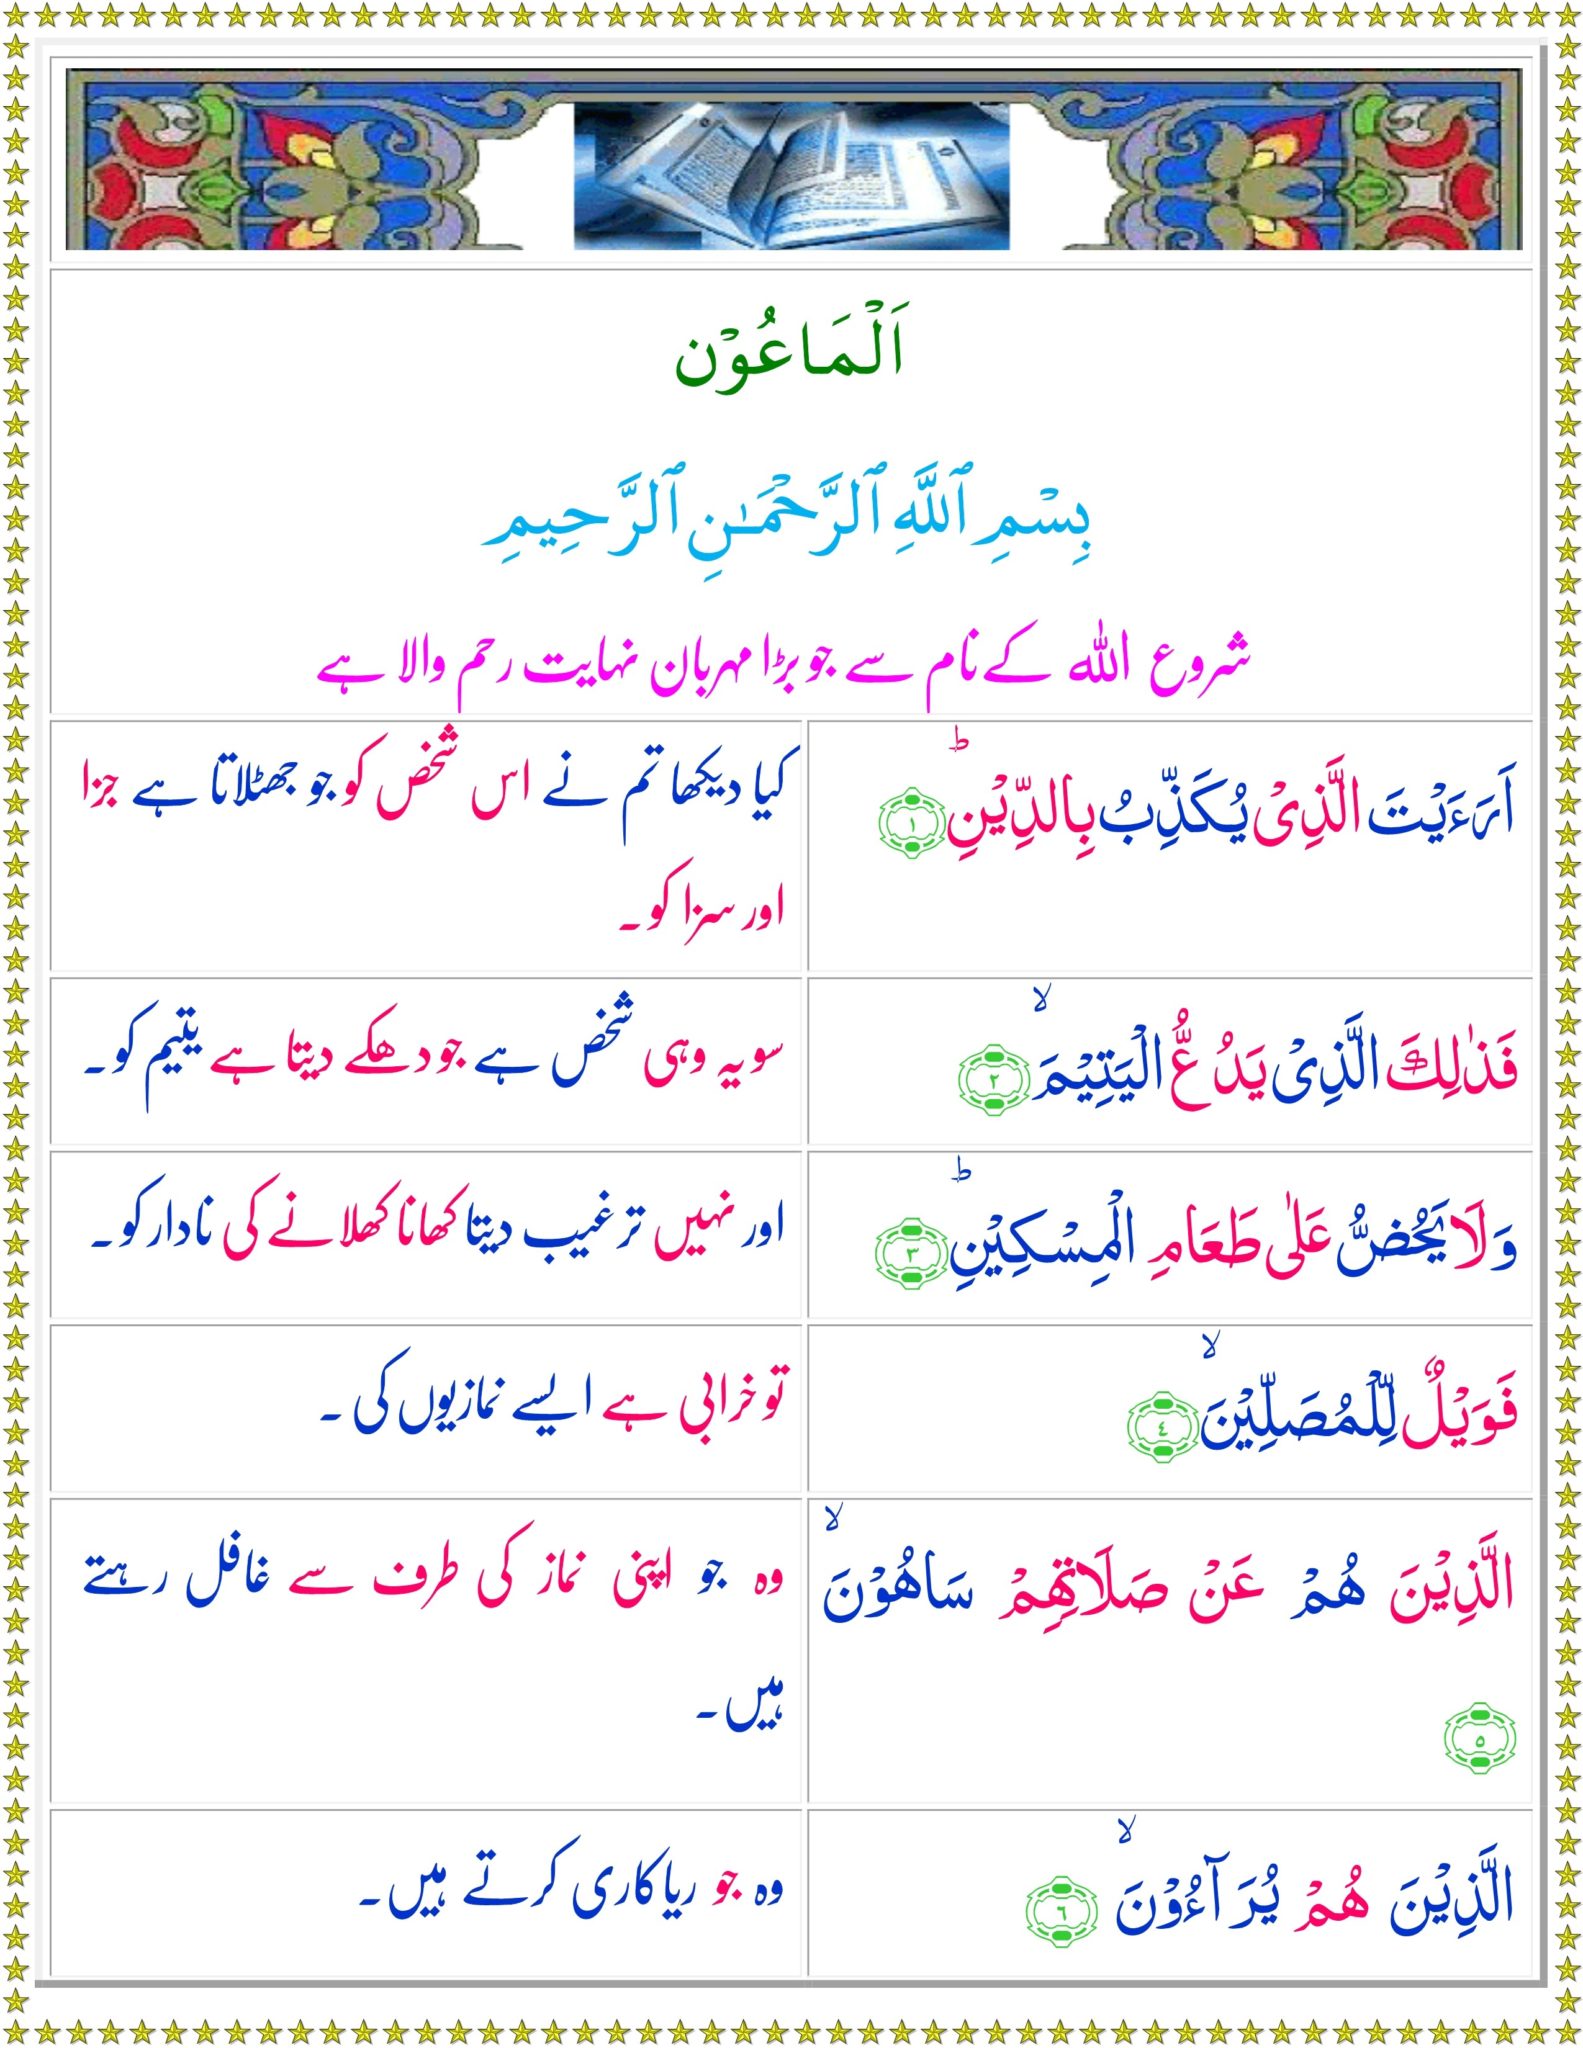 اَلْمَاعُوْن
بِسْمِ ٱللَّهِ ٱلرَّحْمَـٰنِ ٱلرَّحِيمِ
شروع اللہ کے نام سے جو بڑا مہربان نہایت رحم والا ہے
اَرَءَيْتَ الَّذِىْ يُكَذِّبُ بِالدِّيْنِؕ‏ ١
کیا دیکھا تم نے اس شخص کو جو جھٹلاتا ہے جزا
اور سزا کو۔
فَذٰلِكَ الَّذِىْ يَدُعُّ الْيَتِيْمَۙ‏ ٢
سو یہ وہی شخص ہے جو دھکے دیتا ہے یتیم کو۔
وَلَا يَحُضُّ عَلٰى طَعَامِ الْمِسْكِيْنِؕ‏ ٣
اور نہیں ترغیب دیتا کھانا کھلانے کی نادار کو۔
فَوَيْلٌ لِّلْمُصَلِّيْنَۙ‏ ٤
تو خرابی ہے ایسے نمازیوں کی ۔
الَّذِيْنَ هُمْ عَنْ صَلَاتِهِمْ سَاهُوْنَۙ‏
٥
وہ جو اپنی نماز کی طرف سے غافل رہتے
ہیں۔
الَّذِيْنَ هُمْ يُرَآءُوْنَۙ‏ ٦
وہ جو ریاکاری کرتے ہیں۔